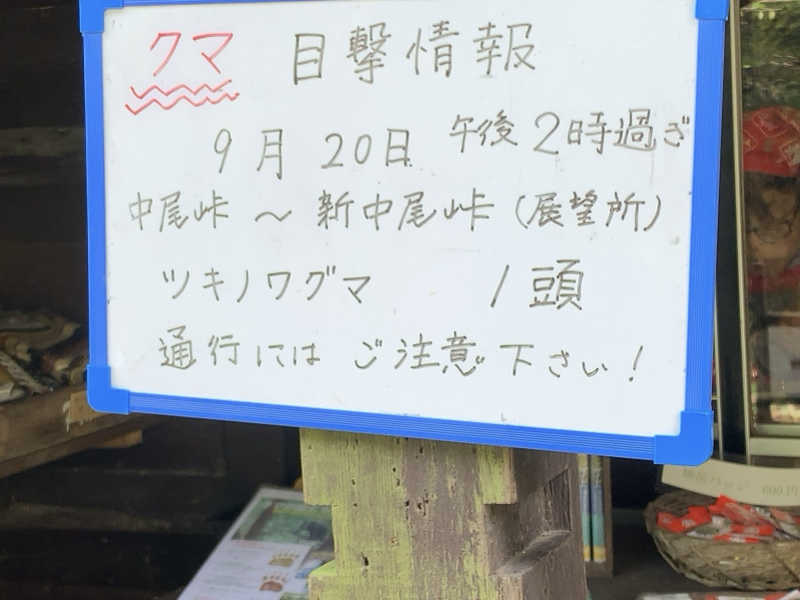 クマ 目撃情報
9月20日 午後2時過ぎ
中尾峠 ～ 新中尾峠（展望所）
ツキノワグマ 1頭
通行には ご注意下さい！
600円